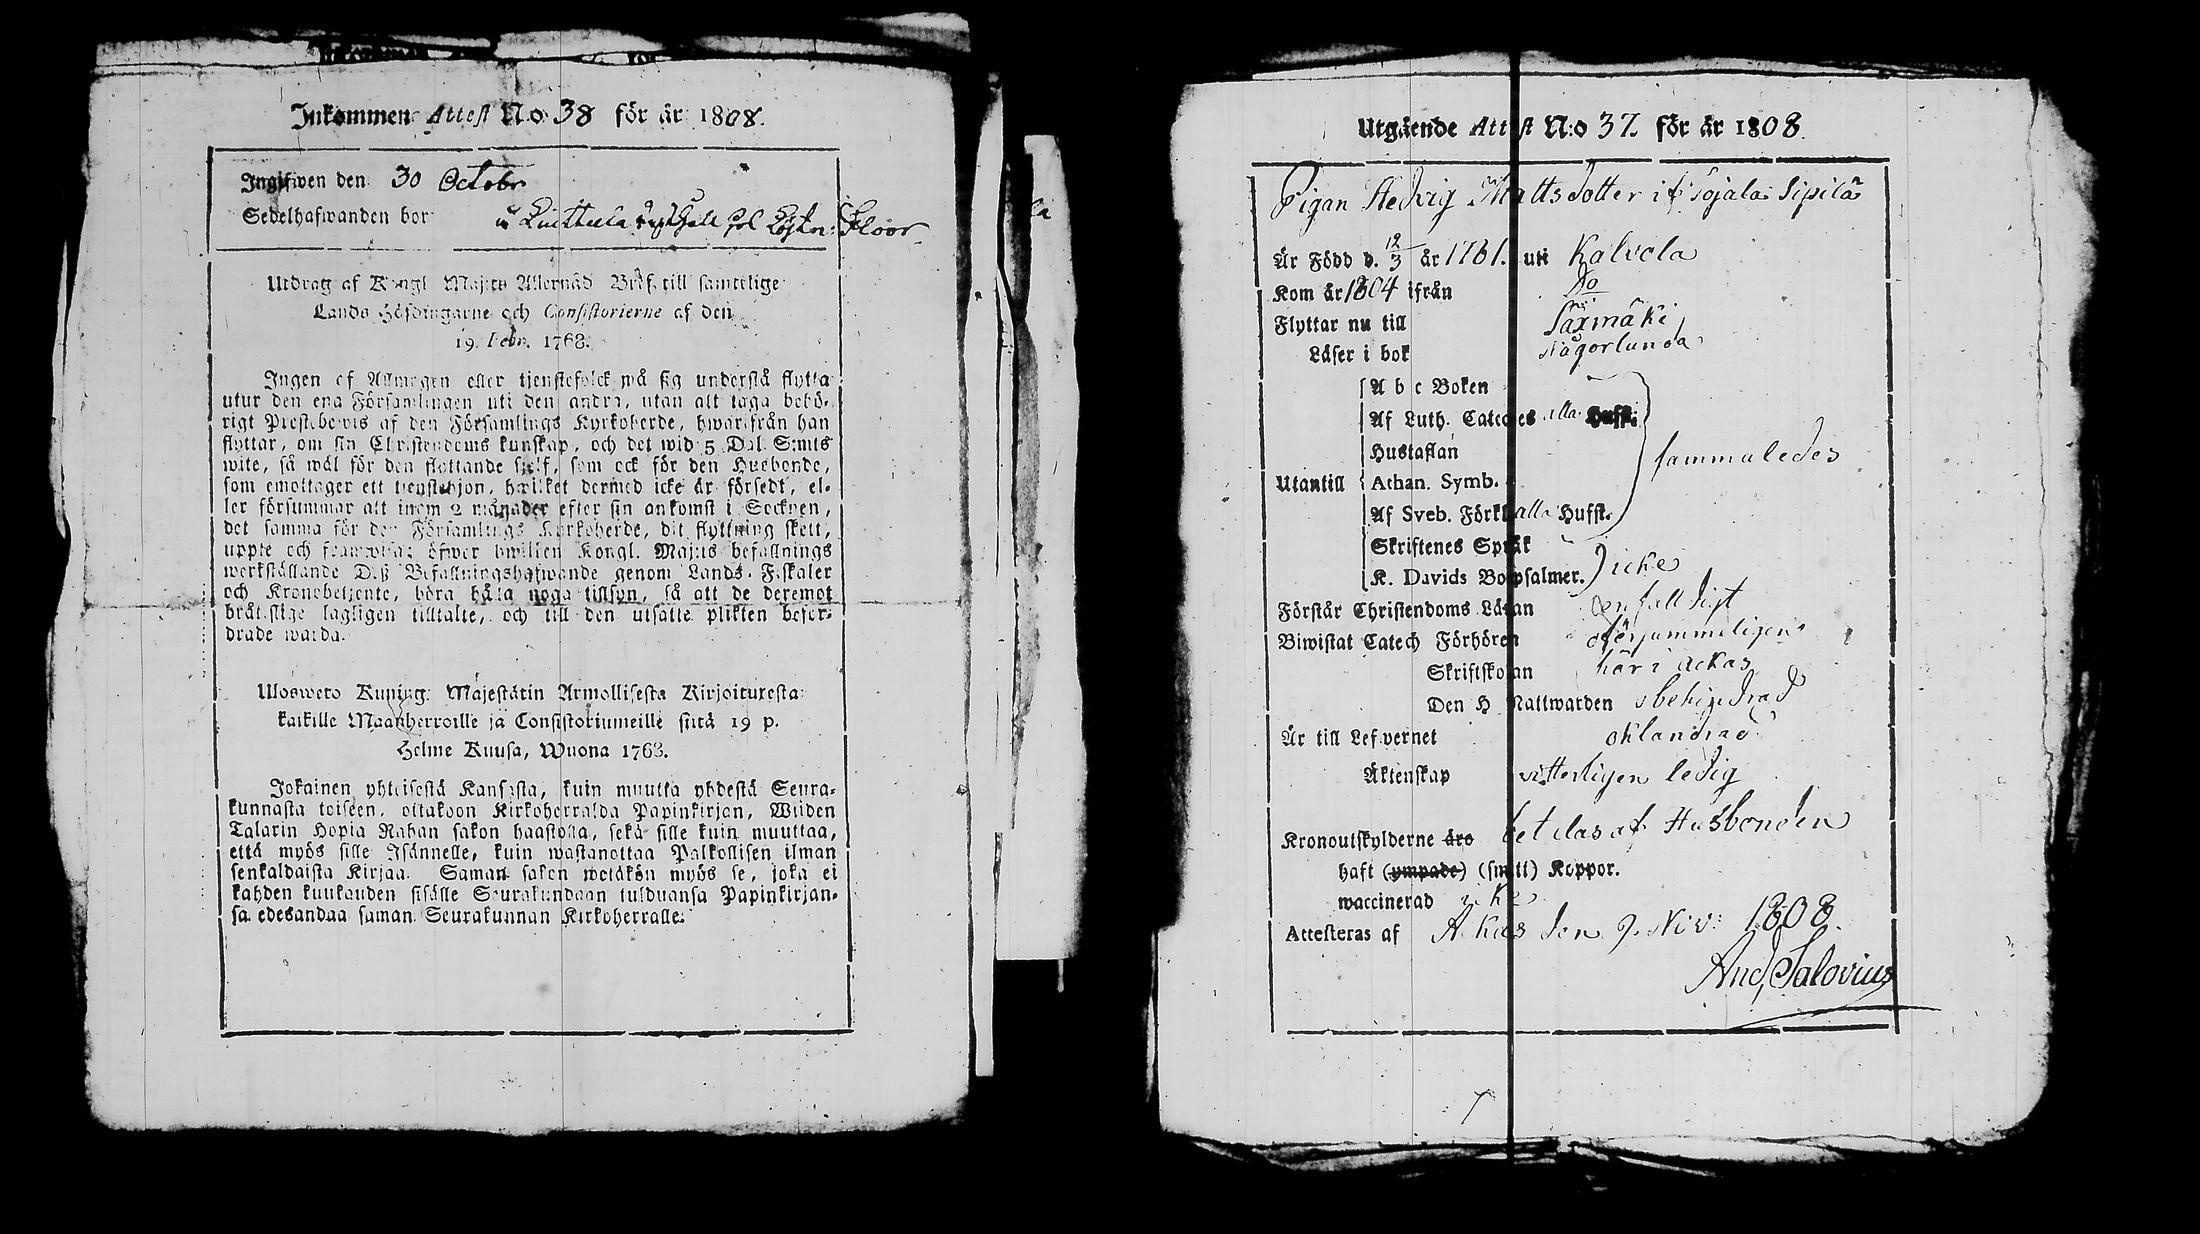 Inkommen Attest N:o 38 för år 1808.
Ingifwen den 30 Octobr
Sedelhafwanden bor
Utdrag af Kongl Majits Allernåd Bref till samtelige
Lands Höfdingarne och Consistorierne af den
19. Febr. 1768.
Ingen af Allmogen eller tjenstefolck må sig understå flytta
utur den ena Församlingen uti den andra, utan att taga behö-
rigt Prestebewis af den Församlings Kyrkoherde, hwarifrån han
flyttar, om sin Christendoms kunskap, och det wid 5 Dal. S:mts
wite, så wäl för den flyttande sjelf, som ock för den Husbonde,
som emottager ett tjenstehjon, hwilket dermed icke är försedt, el-
ler försummar att inom 2 månader efter sin ankomst i Socknen,
det samma för den Församlings Kyrkoherde, dit flyttning skett,
uppte och framwisa; öfwer hwilken Kongl. Majits befallnings
werkställande Deß Befallningshafwande genom Lands-Fiskaler
och Kronobetjente, böra hålla noga tillsyn, så att de deremot
brätslige lagligen tilltalte, och till den utsatte plikten befor-
drade warda.
Ulosweto Kuning: Majestätin Armollisesta Kirjoituxesta
kaikille Maanherroille ja Consistoriumeille siitä 19 p.
Helme Kuusa, Wuona 1763.
Jokainen yhteisestä Kansasta, kuin muutta yhdestä Seura-
kunnasta toiseen, ottakoon Kirkoherralda Papinkirjan, Wiiden
Talarin Hopia Rahan sakon haastolla, sekä sille kuin muuttaa,
että myös sille Isännelle, kuin wastanottaa Palkollisen ilman
senkaldaista Kirjaa. Saman sakon wetäkön myös se, joka ei
kahden kuukauden sisälle Seurakundaan tulduansa Papinkirjan-
sa edesandaa saman Seurakunnan Kirkoherralle.
Utgående Attest N:o 37. för år 1808.
Pigan Hedvig Mattsdotter if: Tojala Sipilä
Är Född d. 12/3 år 1761. uti Kalvola
Kom år 1804 ifrån Do
Flyttar nu till Säxmäki
Läser i bok någorlunda
A b c Boken
Af Luth. Cateches alla Hufst:
Hustaflan
Utantill Athan. Symb.
sammaledes
Af Sveb. Förkl alla Hufst.
Skriftenes Språk
K. Davids Botpsalmer. icke
Förstår Christendoms Läran enfalldigt
Biwistat Catech Förhören oförsummeligen
Skriftskolan här i Ackas
Den H Nattwarden obehindrad
Är till Lefvernet oklandrad
Äktenskap vitterligen ledig
Kronoutskylderne äro betalas af Husbonden
haft (ympade) (smitt) Koppor.
waccinerad icke
Attesteras af Ackas den 9. Nov: 1808.
And. Salovius